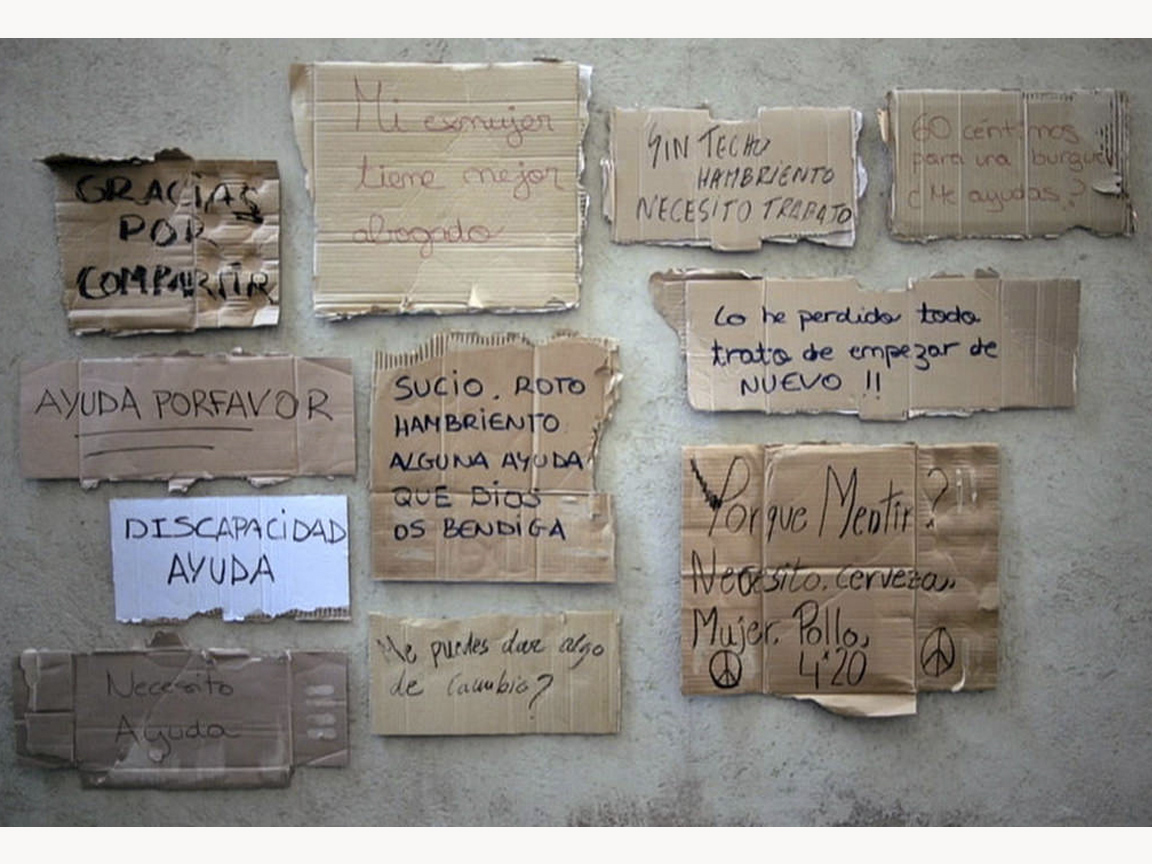 GRACIAS
POR
COMPARTIR
Mi exmujer
tiene mejor
abogado
SIN TECHO
HAMBRIENTO
NECESITO TRABAJO
60 céntimos
para una burguer
¿Me ayudas?
Lo he perdido todo
trato de empezar de
NUEVO !!
AYUDA PORFAVOR
SUCIO. ROTO
HAMBRIENTO
ALGUNA AYUDA
QUE DIOS
OS BENDIGA
DISCAPACIDAD
AYUDA
Porque Mentir?
Necesito. Cerveza.
Mujer. Pollo,
4'20
Me puedes dar algo
de cambio?
Necesito
Ayuda